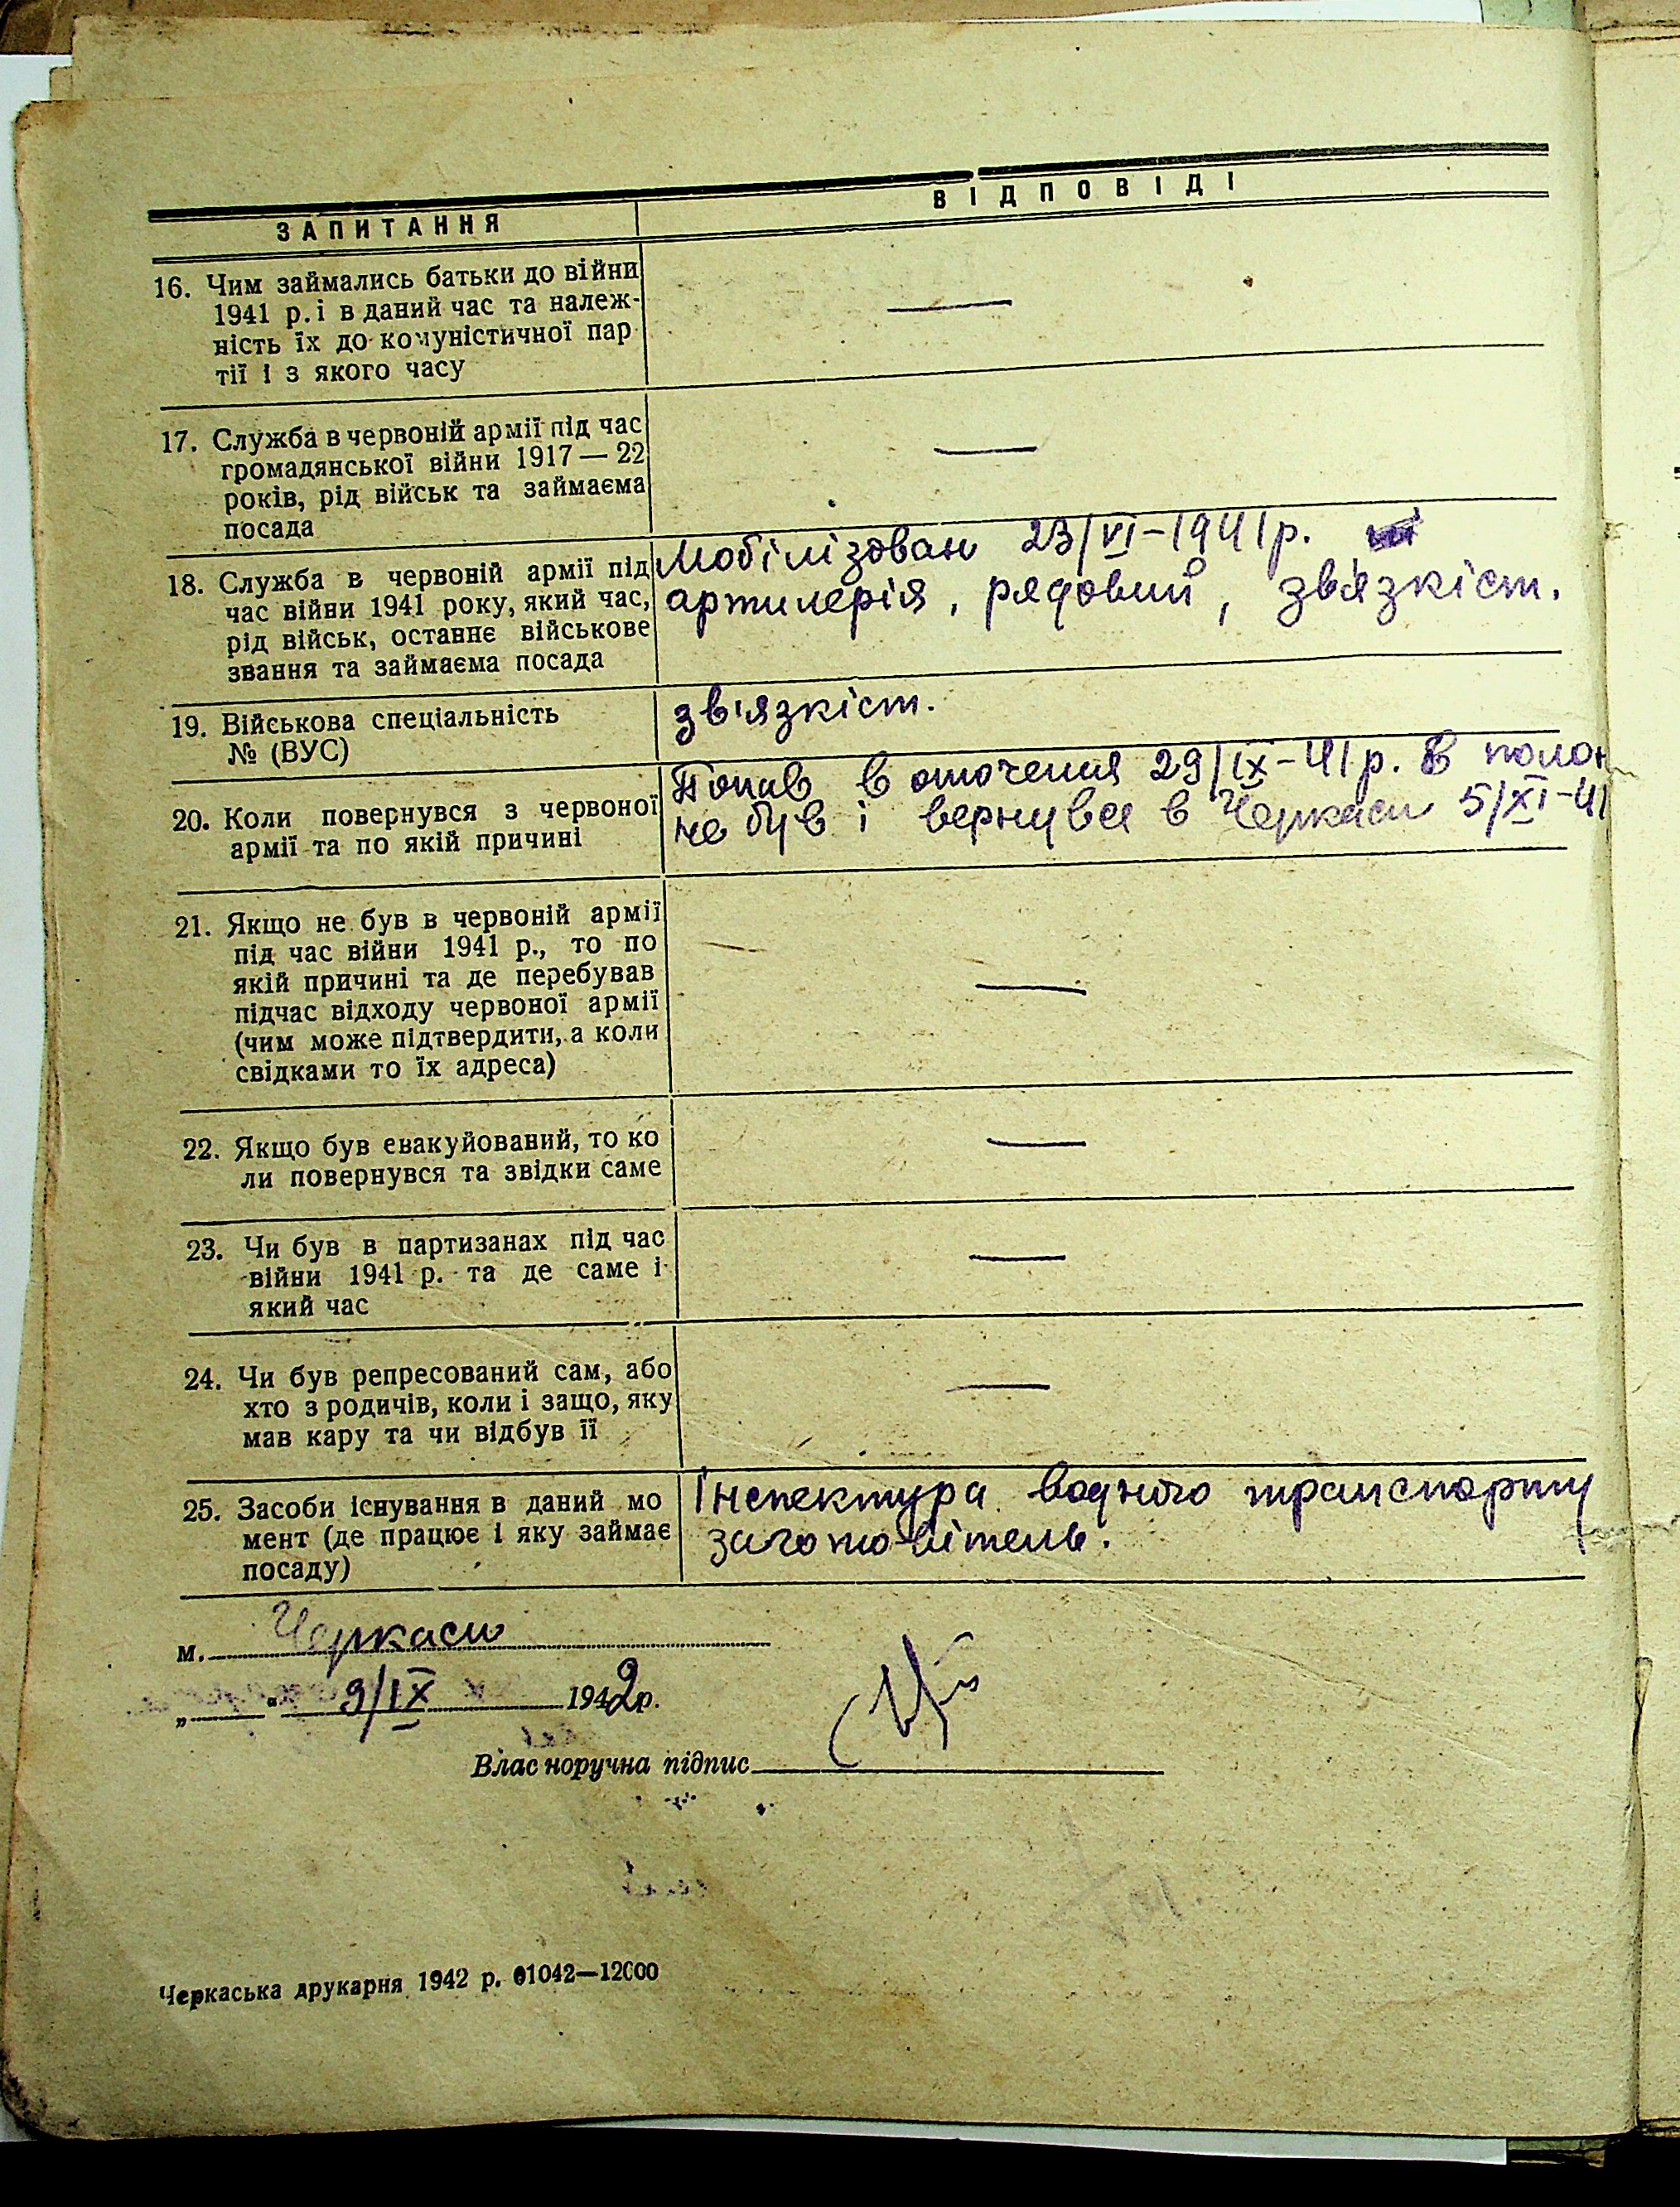 ЗАПИТАННЯ ВІДПОВІДІ
16. Чим займались батьки до війни
1941 р. і в даний час та належ-
ність їх до комуністичної пар
тії і з якого часу
—
17. Служба в червоній армії під час
громадянської війни 1917 — 22
років, рід військ та займаєма
посада
—
18. Служба в червоній армії під
час війни 1941 року, який час,
рід військ, останнє військове
звання та займаєма посада
Мобілізован 23/VI-1941р.
артилерія, рядовий, зв'язкіст.
19. Військова спеціальність
№ (ВУС)
зв'язкіст.
20. Коли повернувся з червоної
армії та по якій причині
Попав в оточення 29/IX-41р. В полон
не був і вернувся в Черкаси 5/XI-41
21. Якщо не був в червоній армії
під час війни 1941 р., то по
якій причині та де перебував
підчас відходу червоної армії
(чим може підтвердити, а коли
свідками то їх адреса)
—
22. Якщо був евакуйований, то ко
ли повернувся та звідки саме
—
23. Чи був в партизанах під час
війни 1941 р. та де саме і
який час
—
24. Чи був репресований сам, або
хто з родичів, коли і защо, яку
мав кару та чи відбув її
—
25. Засоби існування в даний мо
мент (де працює і яку займає
посаду)
Інспектура водного транспорту
заготовітель.
м. Черкаси
„ “ 9/IX 1942р.
Власноручна підпис
Черкаська друкарня 1942 р. 01042—12000